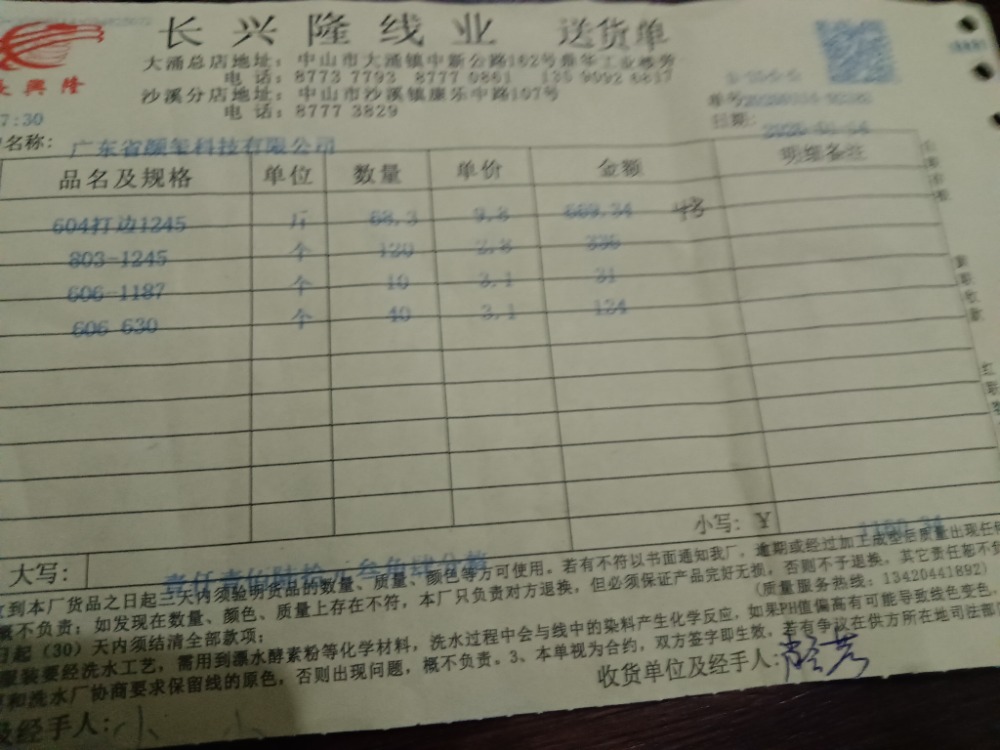 长兴隆线业 送货单
大涌总店地址: 中山市大涌镇中新公路162号
电话: 8773 7793 8777 0861
沙溪分店地址: 中山市沙溪镇康乐中路107号
电话: 8777 3829
7:30
名称: 广东省颜玺科技有限公司
品名及规格 单位 数量 单价 金额 明细备注
604打边1245 斤 68.3 9.8 669.34
803-1245 个 120 2.8 336
606-1187 个 10 3.1 31
606-630 个 40 3.1 124
小写: ¥ 1160.34
大写: 壹仟壹佰陆拾
收到本厂货品之日起三天内须验明货品的数量、质量、颜色等方可使用。若有不符以书面通知我厂, 逾期或经过加工成型后质量出现任
概不负责; 如发现在数量、颜色、质量上存在不符, 本厂只负责对方退换, 但必须保证产品完好无损, 否则不予退换, 其它责任概不负
日起 (30) 天内须结清全部款项; (质量服务热线: 13420441892)
服装要经洗水工艺, 需用到漂水酵素粉等化学材料, 洗水过程中会与线中的染料产生化学反应, 如果PH值偏高有可能导致线色变色,
和洗水厂协商要求保留线的原色, 否则出现问题, 概不负责。3、本单视为合约, 双方签字即生效, 若有争议在供方所在地司法部
及经手人: 收货单位及经手人: